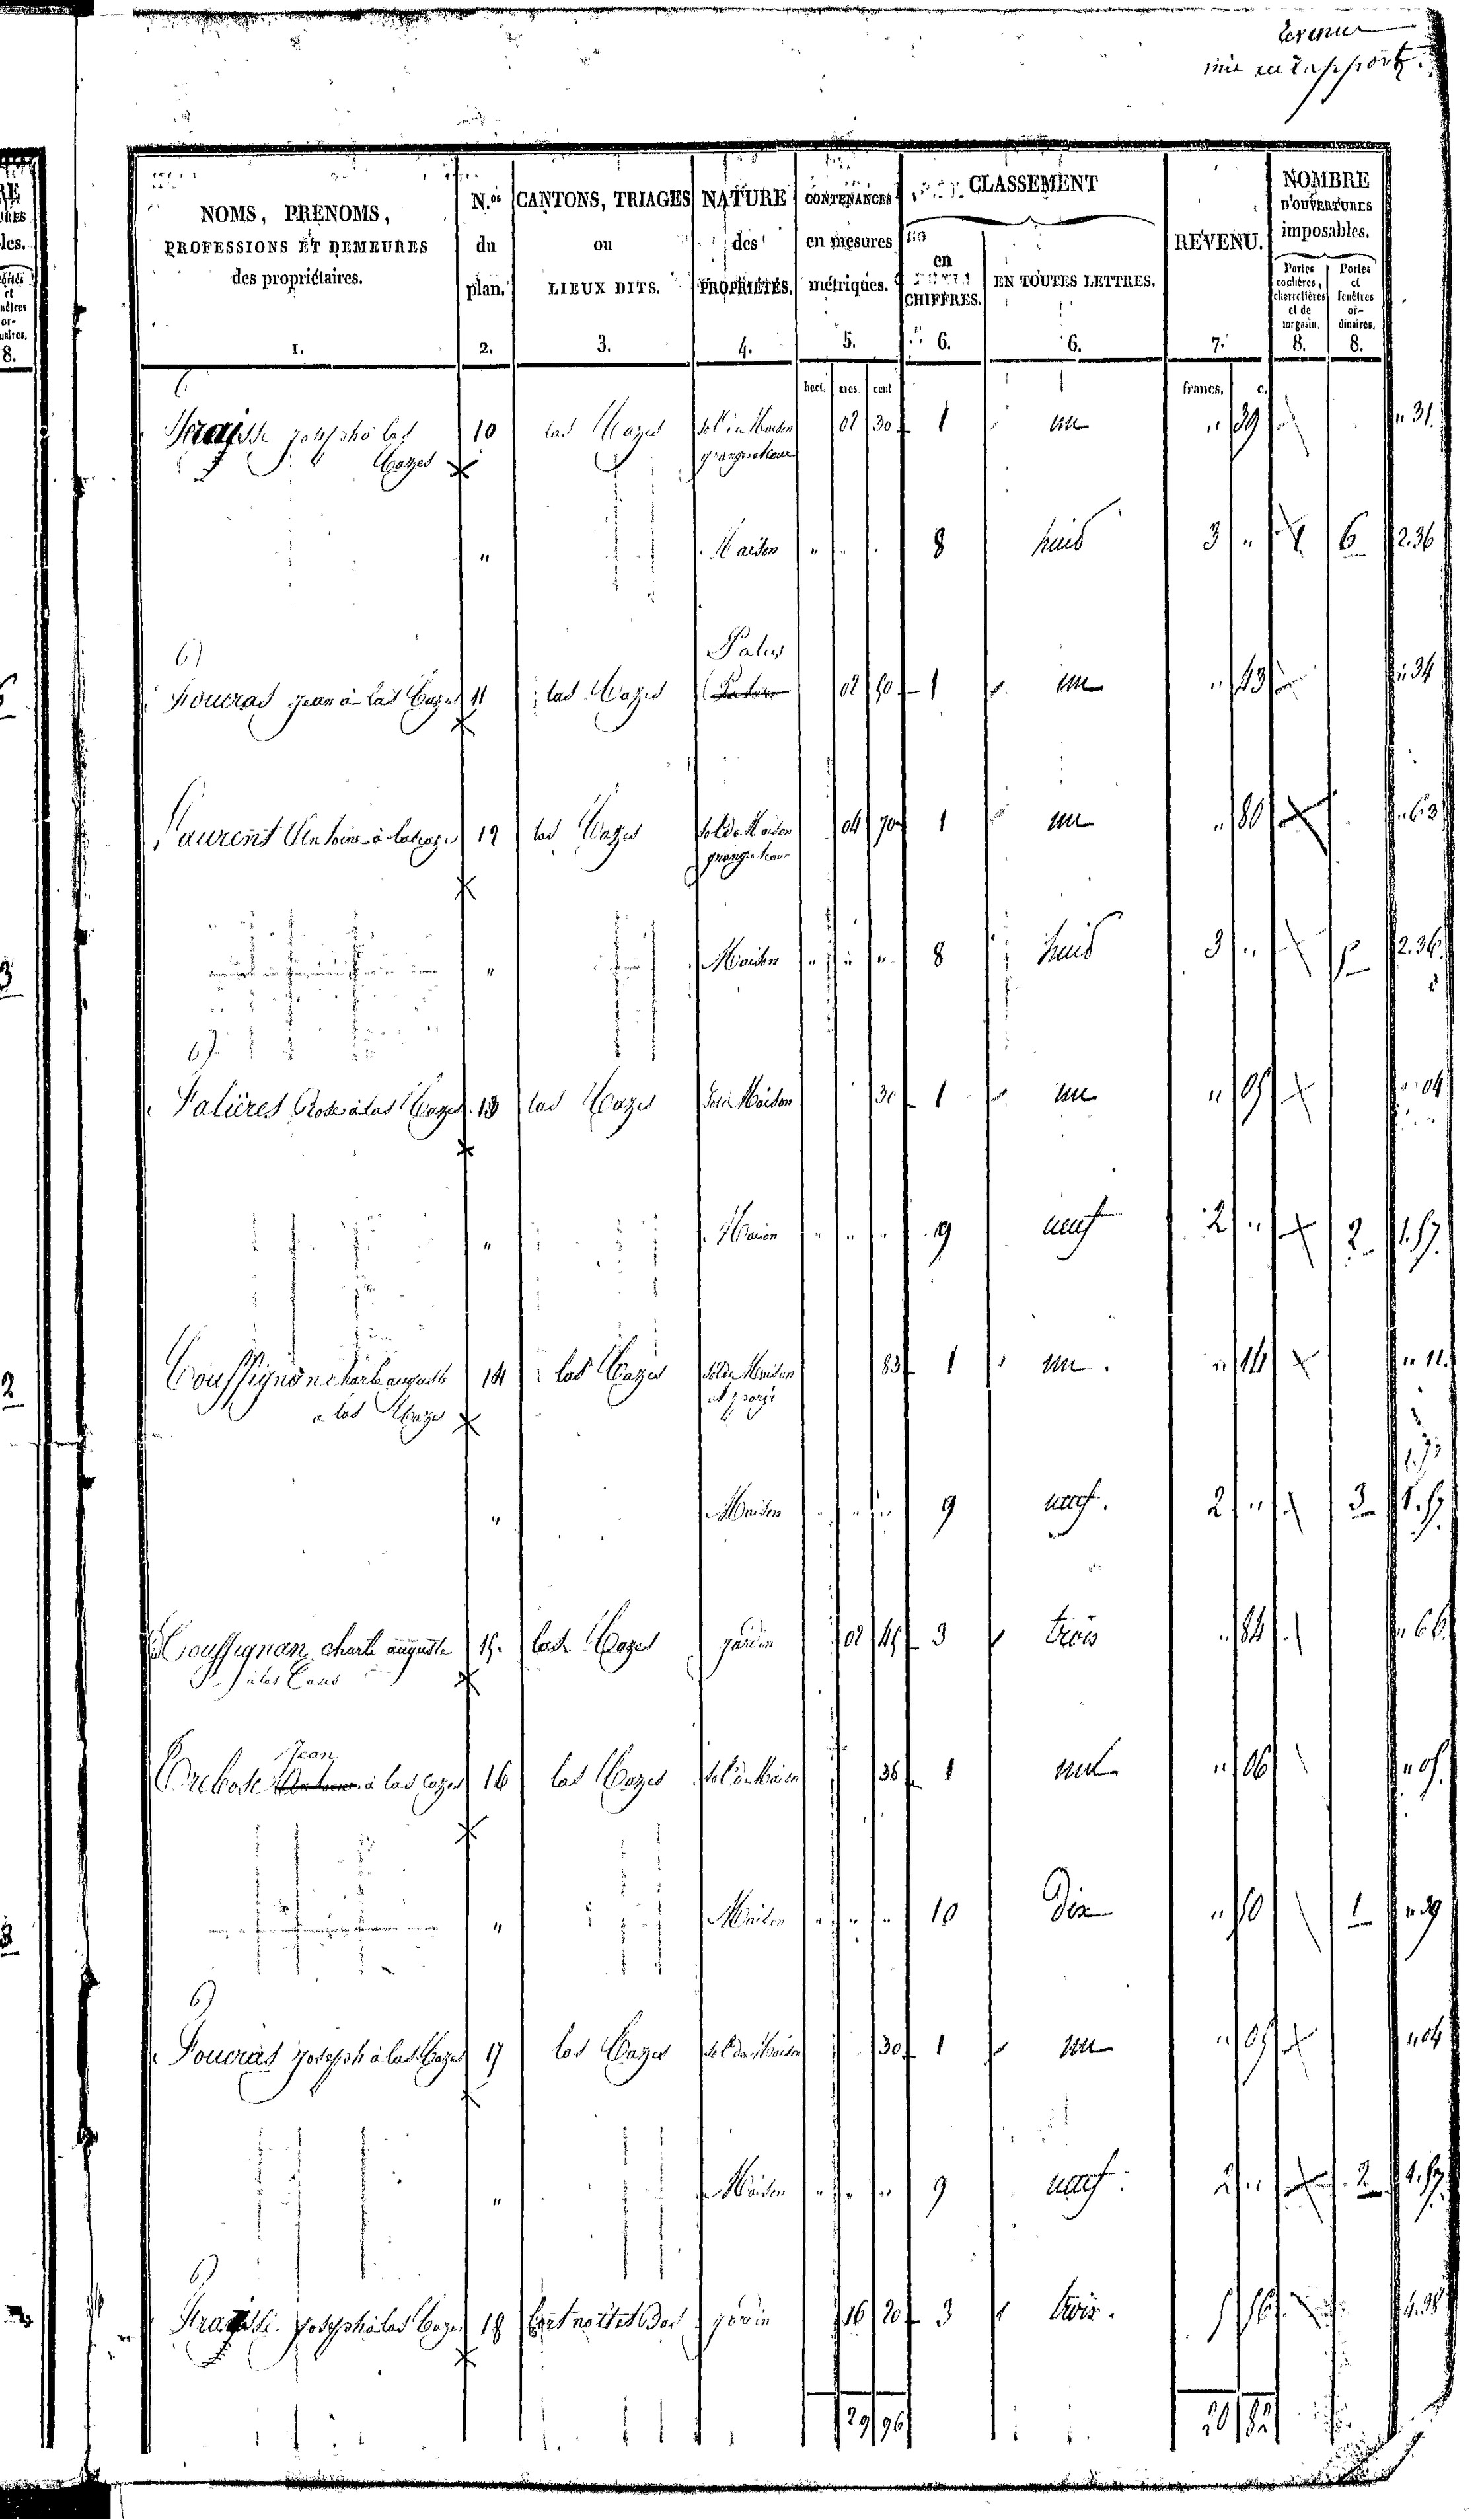 Revenu
mis en rapport.
NOMS, PRENOMS, PROFESSIONS ET DEMEURES des propriétaires. 1.
N.os du plan. 2.
CANTONS, TRIAGES ou LIEUX DITS. 3.
NATURE des PROPRIÉTÉS. 4.
CONTENANCES en mesures métriques. 5.
CLASSEMENT
en CHIFFRES. 6.
EN TOUTES LETTRES. 6.
REVENU. 7.
NOMBRE D'OUVERTURES imposables.
Portes cochères, charretières et de magasin. 8.
Portes et fenêtres ordinaires. 8.
hect. ares. cent francs. c.
joseph à las Cazes 10 las Cazes sol de Maison grange et cour 02 30 1 un " 39 " 31
" Maison " " " 8 huit 3 " 6 2.36
Foucras jean à las Cazes 11 las Cazes Patus 02 50 1 un " 43 " 34
Laurent Antoine à las cazes 12 las Cazes sol de Maison grange et cour 04 70 1 un " 80 " 63
" Maison " " " 8 huit 3 " 2.36
Rose à las Cazes 13 las Cazes sol de Maison 30 1 un " 05 " 04
" Maison " " " 9 neuf 2 " 2 1.57
Coussignan charle auguste à las Cazes 14 las Cazes sol de Maison et 83 1 un " 14 " 11
" Maison " " " 9 neuf 2 " 3 1.57
Coussignan charle auguste à las Cazes 15 las Cazes jardin 02 45 3 trois " 84 " 66
Jean
à las cazes 16 las Cazes sol de Maison 38 1 un " 06 " 05
" Maison " " " 10 Dix " 50 1 " 39
Foucras joseph à las Cazes 17 las Cazes sol de Maison 30 1 un " 05 " 04
" Maison " " " 9 neuf 2 " 2 1.57
joseph à las Cazes 18 jardin 16 20 3 trois 5 56 4.38
29 96 20 82